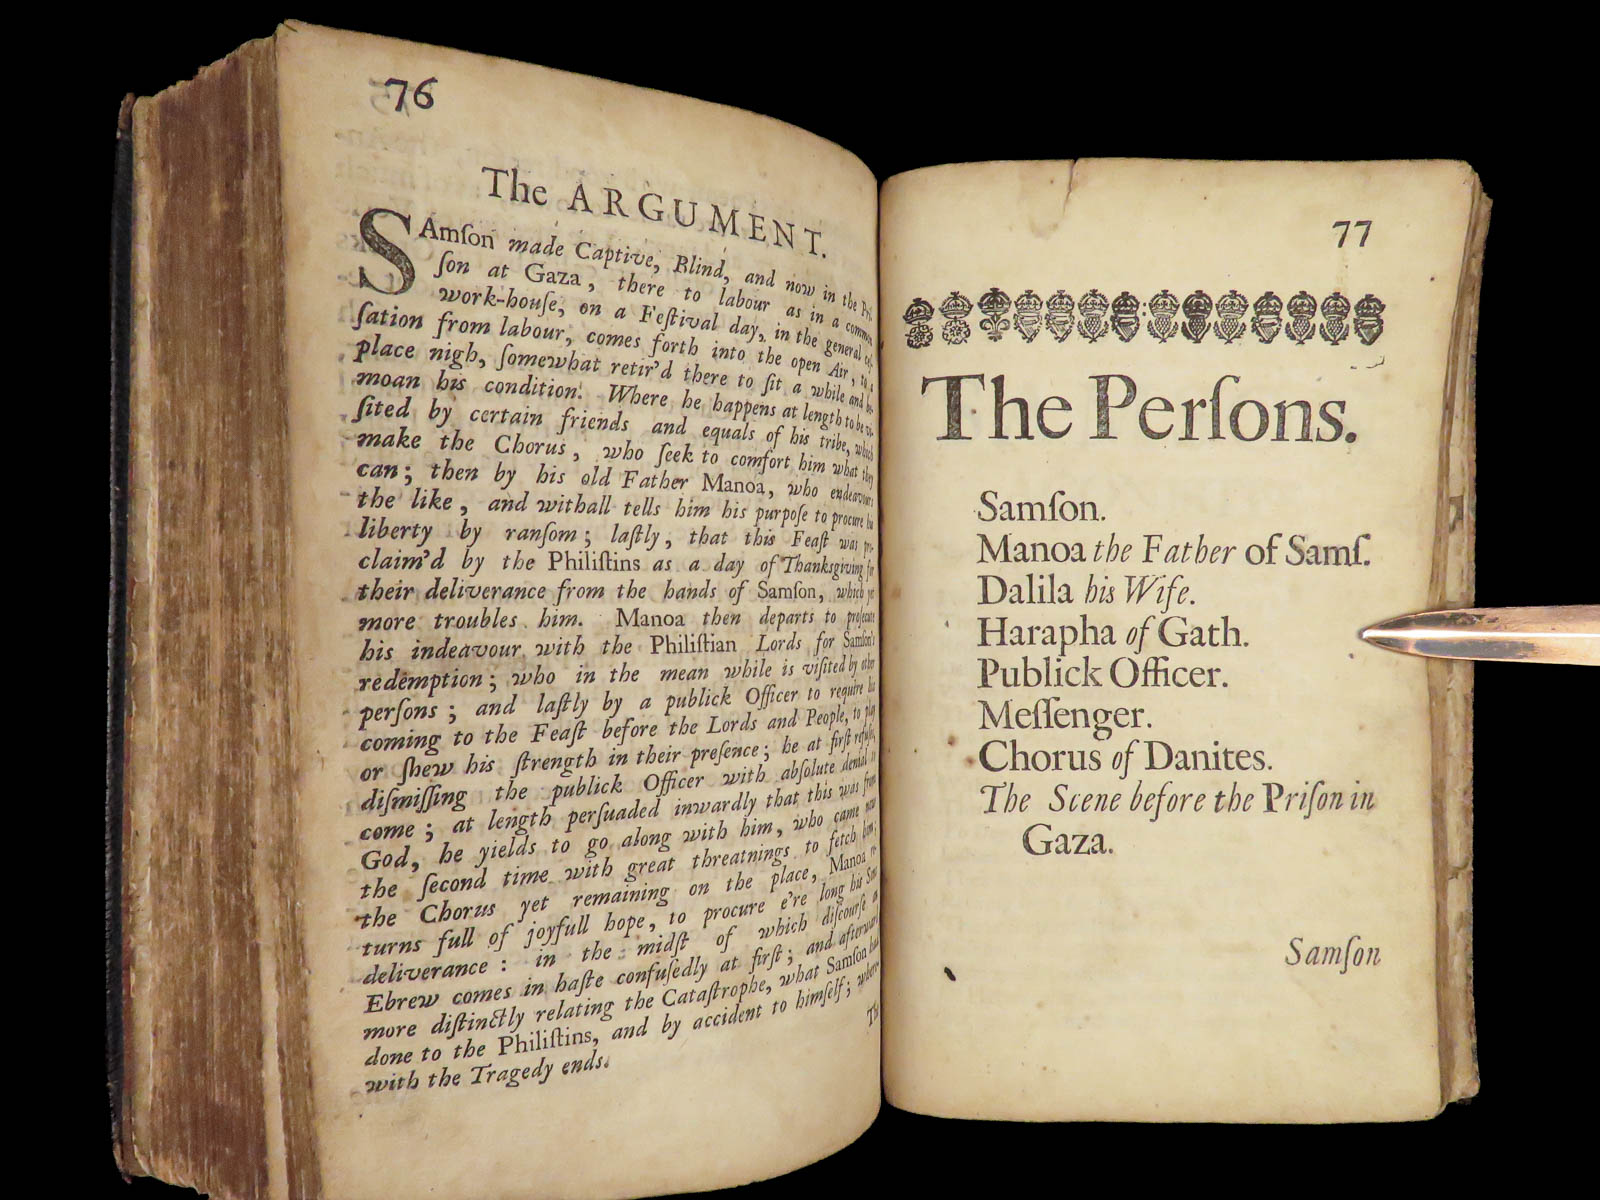 76
The ARGUMENT.
SAmſon made Captive, Blind, and now in the Pri-
ſon at Gaza, there to labour as in a common
work-houſe, on a Feſtival day, in the general ceſ-
ſation from labour, comes forth into the open Air, to a
place nigh, ſomewhat retir'd there to ſit a while and be-
moan his condition. Where he happens at length to be vi-
ſited by certain friends and equals of his tribe, which
make the Chorus, who ſeek to comfort him what they
can; then by his old Father Manoa, who endeavours
the like, and withall tells him his purpoſe to procure his
liberty by ranſom; laſtly, that this Feaſt was pro-
claim'd by the Philiſtins as a day of Thanksgiving for
their deliverance from the hands of Samſon, which yet
more troubles him. Manoa then departs to proſecute
his indeavour with the Philiſtian Lords for Samſon's
redemption; who in the mean while is viſited by other
perſons; and laſtly by a publick Officer to require his
coming to the Feaſt before the Lords and People, to play
or ſhew his ſtrength in their preſence; he at firſt refuſes,
diſmiſſing the publick Officer with abſolute denial to
come; at length perſuaded inwardly that this was from
God, he yields to go along with him, who came now
the ſecond time with great threatnings to fetch him;
the Chorus yet remaining on the place, Manoa re-
turns full of joyfull hope, to procure e're long his Sons
deliverance: in the midſt of which diſcourſe an
Ebrew comes in haſte confuſedly at firſt; and afterward
more diſtinctly relating the Cataſtrophe, what Samſon had
done to the Philiſtins, and by accident to himſelf; where-
with the Tragedy ends.
The
77
The Perſons.
Samſon.
Manoa the Father of Samſ.
Dalila his Wife.
Harapha of Gath.
Publick Officer.
Meſſenger.
Chorus of Danites.
The Scene before the Priſon in
Gaza.
Samſon